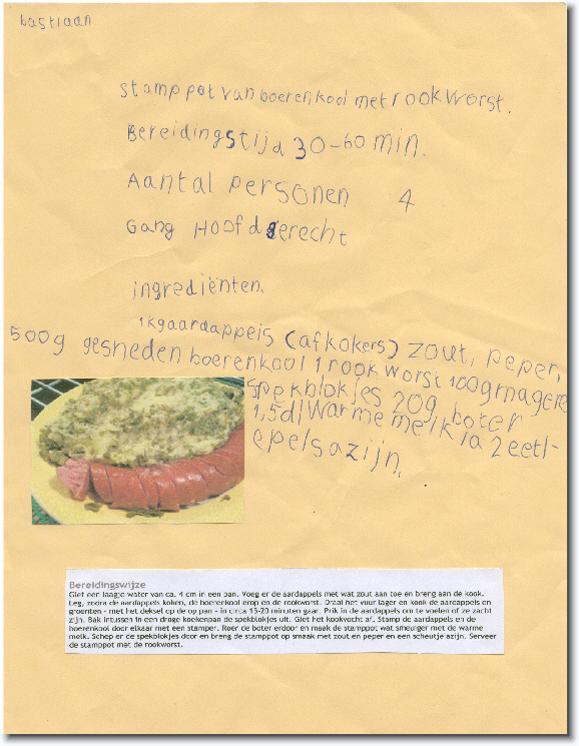 bastiaan
stamppot van boerenkool met rookworst.
Bereidingstijd 30-60 min.
Aantal personen 4
Gang Hoofdgerecht
ingrediënten.
1kgaardappels (afkokers) zout, peper,
500g gesneden boerenkool 1 rookworst 100g magere
spekblokjes 20g boter
1,5dl warme melk 1a 2 eetl-
epels azijn.
Bereidingswijze
Giet een laagje water van ca. 4 cm in een pan. Voeg er de aardappels met wat zout aan toe en breng aan de kook.
Leg, zodra de aardappels koken, de boerenkool erop en de rookworst. Draai het vuur lager en kook de aardappels en
groenten - met het deksel op de op pan - in circa 15-20 minuten gaar. Prik in de aardappels om te voelen of ze zacht
zijn. Bak intussen in een droge koekenpan de spekblokjes uit. Giet het kookvocht af. Stamp de aardappels en de
boerenkool door elkaar met een stamper. Roer de boter erdoor en maak de stamppot wat smeuïger met de warme
melk. Schep er de spekblokjes door en breng de stamppot op smaak met zout en peper en een scheutje azijn. Serveer
de stamppot met de rookworst.